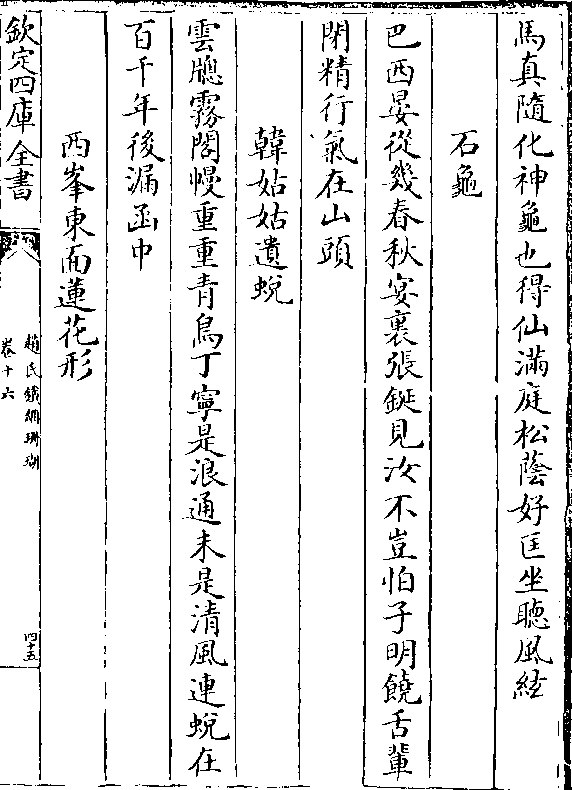 馬真隨化神龜也得仙滿庭松蔭好匡坐聽風絃
石龜
巴西晏從幾春秋宴裏張鋋見汝不豈怕子明饒舌輩
閉精行氣在山頭
韓姑姑遺蛻
雲牕霧閣幔重重青鳥丁寧是浪通未是清風連蛻在
百千年後漏函中
西峯東面蓮花形
欽定四庫全書
趙氏鐵網珊瑚
卷十六
四十五